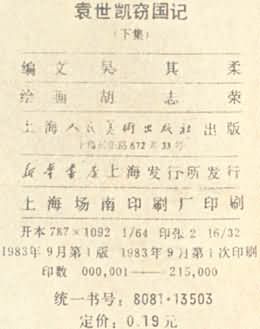 袁世凯窃国记
(下集)
编文 吴其柔
绘画 胡志荣
上海人民美術出版社 出版
上海长乐路672弄33号
新华書店上海发行所发行
上海场南印刷厂印刷
开本 787×1092 1/64 印张 2 16/32
1983年9月第1版 1983年9月第1次印刷
印数 000,001——215,000
统一书号：8081·13503
定价：0.19元